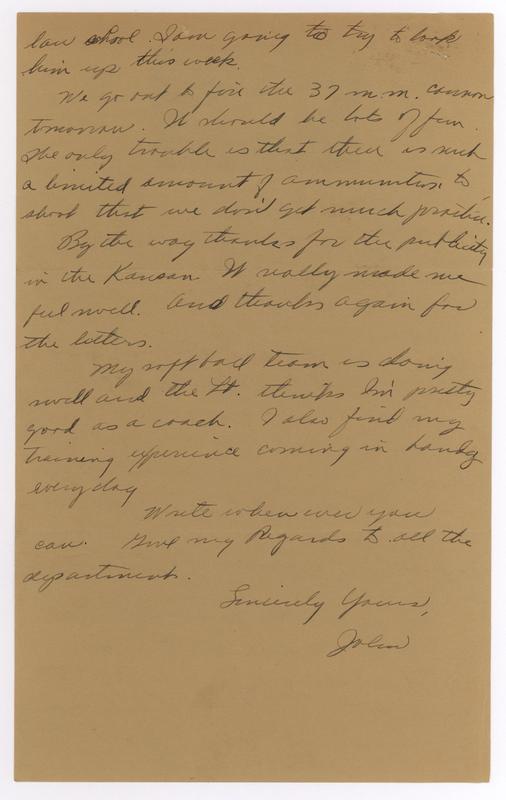 law school. I am going to try to look
him up this week.
We go out to fire the 37 m.m. cannon
tomorrow. It should be lots of fun.
The only trouble is that there is such
a limited amount of ammunition to
shoot that we don't get much practice.
By the way thanks for the publicity
in the Kansan It really made me
feel swell. And thanks again for
the letters.
My soft ball team is doing
swell and the Lt. thinks I'm pretty
good as a coach. I also find my
training experience coming in handy
everyday
Write when ever you
can. Give my Regards to all the
department.
Sincerely Yours,
John